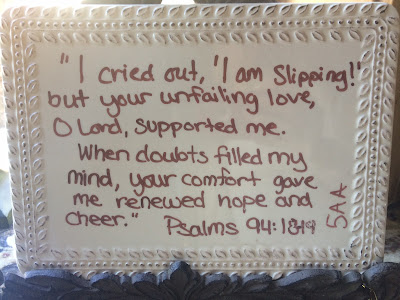 "I cried out, 'I am Slipping!'
but your unfailing love,
O Lord, supported me.
When doubts filled my
mind, your comfort gave
me renewed hope and
cheer." Psalms 94:18-19
5AA